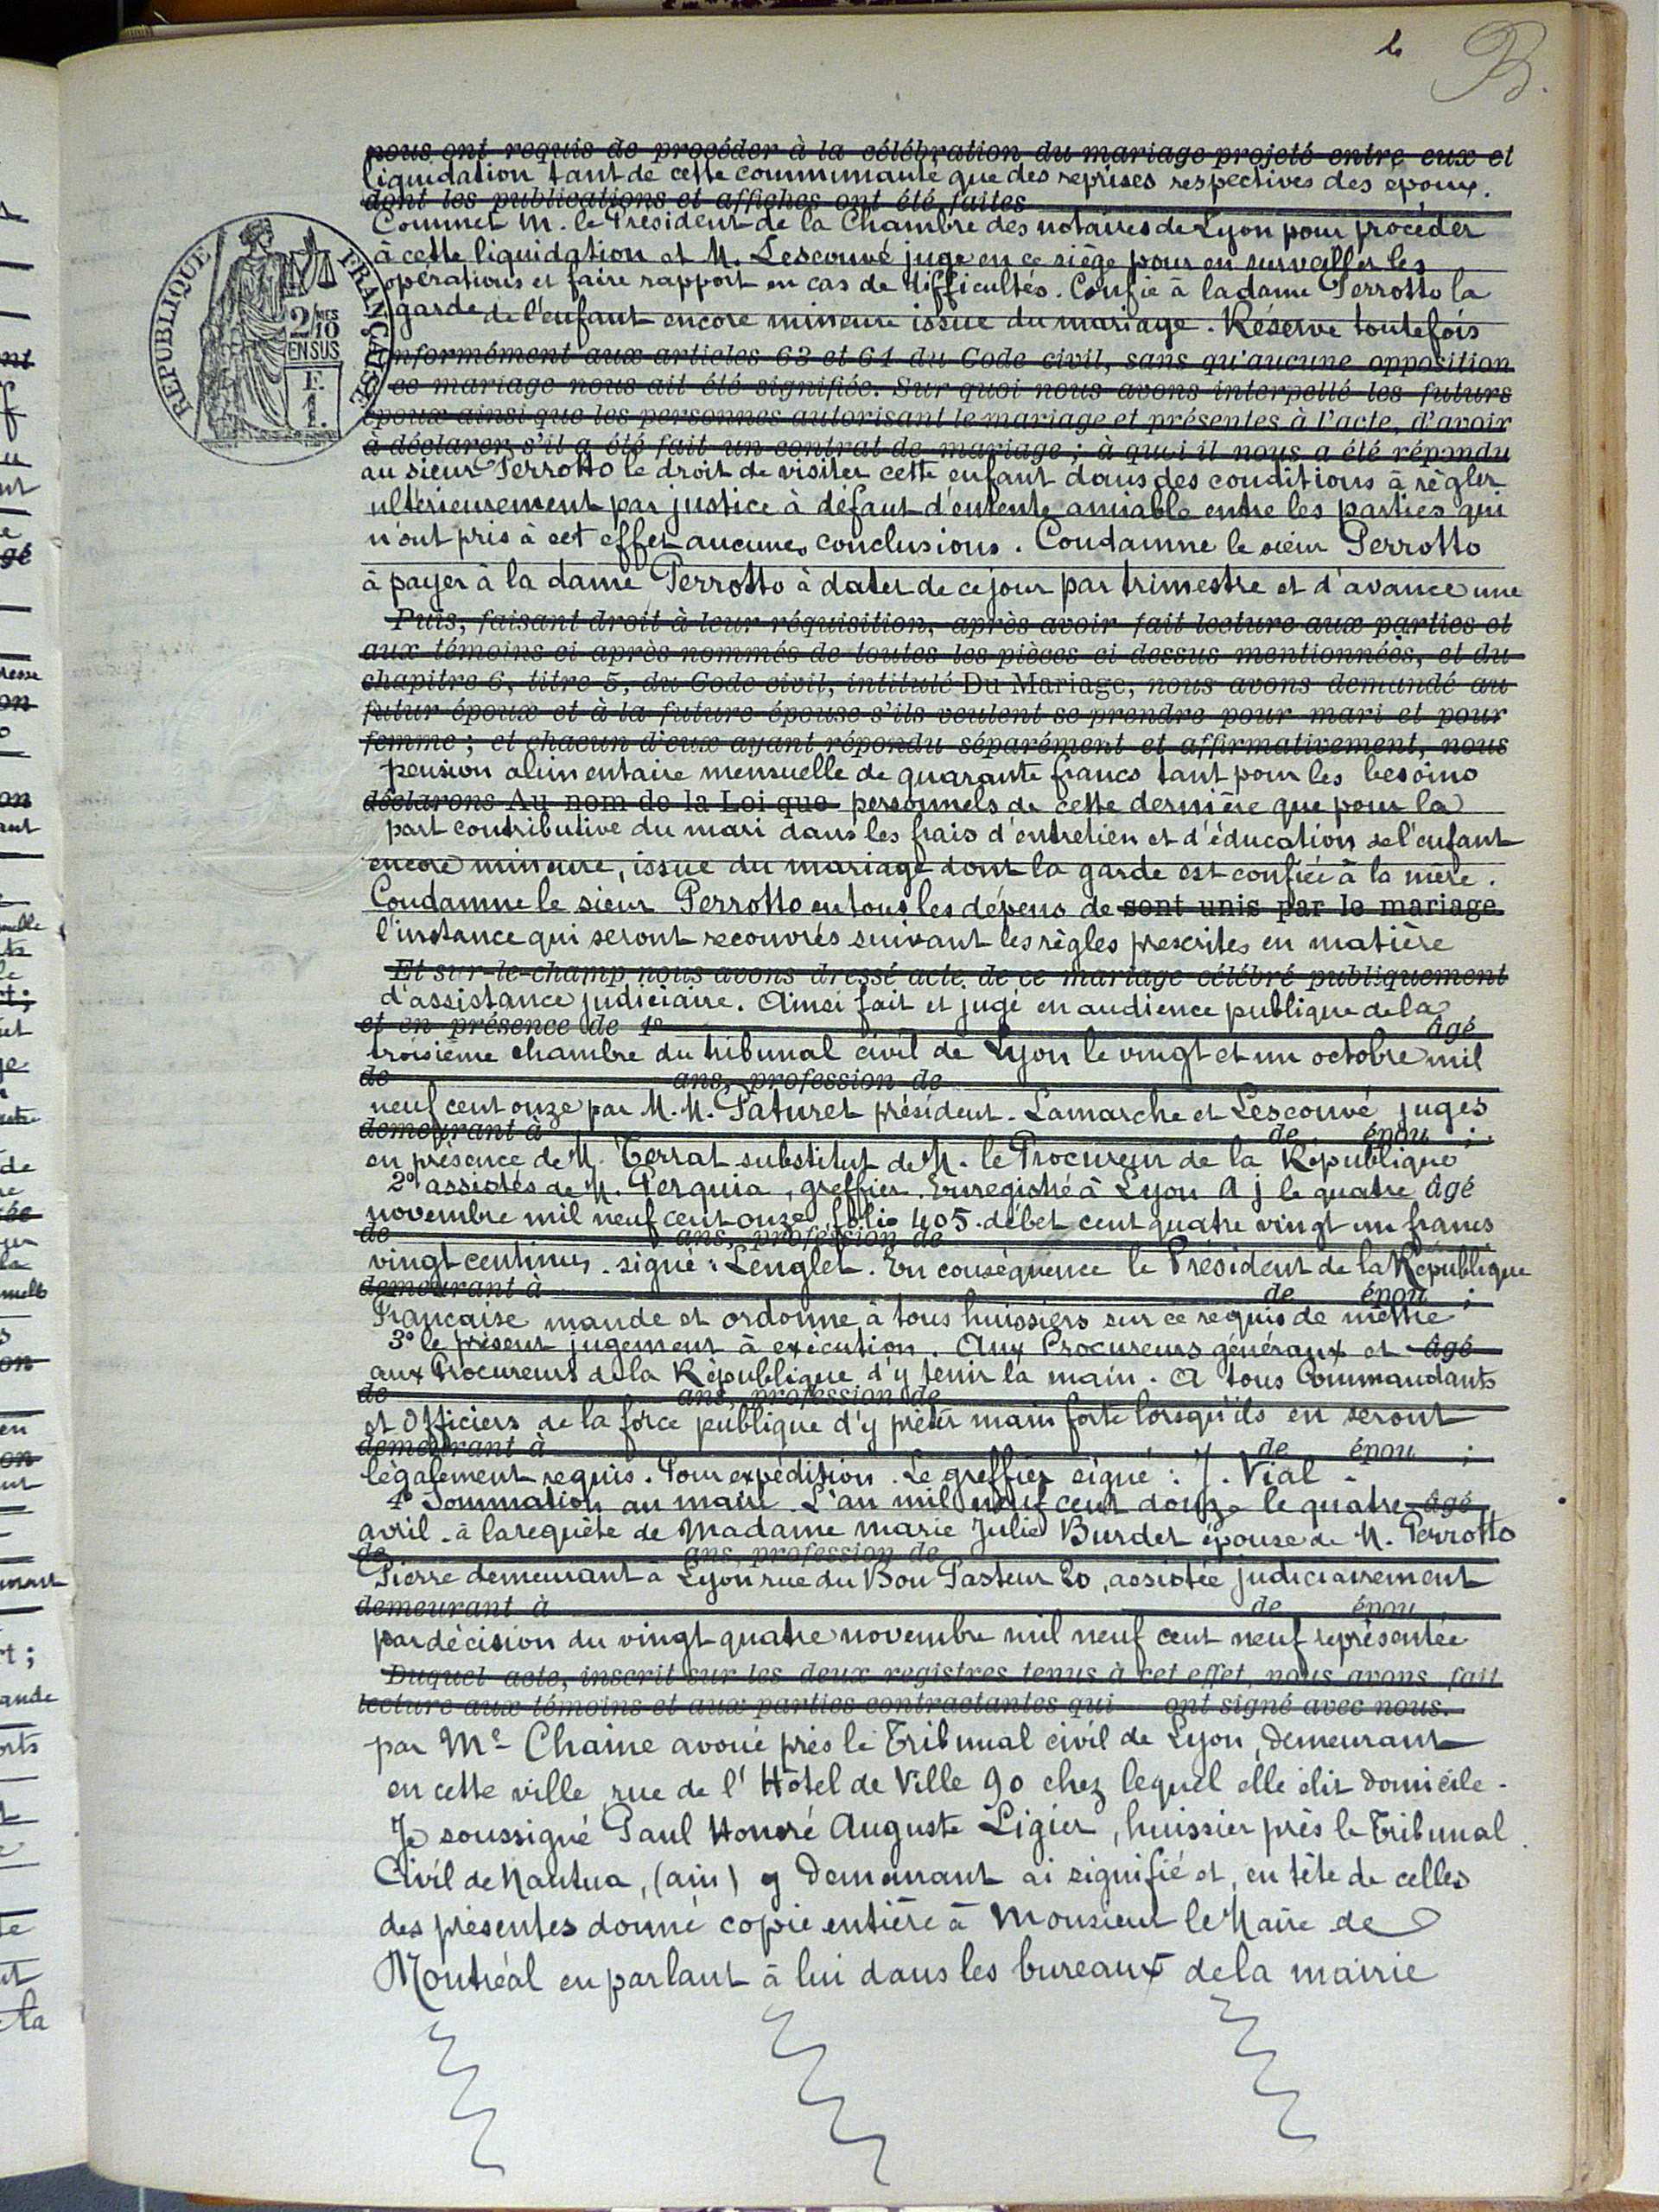 2 B.
nous ont requis de procéder à la célébration du mariage projeté entre eux et
liquidation tant de cette communauté que des reprises respectives des époux.
dont les publications et affiches ont été faites
Commet M. le Président de la Chambre des notaires de Lyon pour procéder
à cette liquidation et M. Lescouvé juge en ce siège pour en surveiller les
opérations et faire rapport en cas de difficultés. Confie à la dame Perrotto la
garde de l'enfant encore mineure issue du mariage. Réserve toutefois
RÉPUBLIQUE FRANÇAISE
2/10 MES
EN SUS
E.
1.
nformément aux articles 63 et 64 du Code civil, sans qu'aucune opposition
ce mariage nous ait été signifiée. Sur quoi nous avons interpellé les futurs
époux ainsi que les personnes autorisant le mariage et présentes à l'acte, d'avoir
à déclarer s'il a été fait un contrat de mariage ; à quoi il nous a été répondu
au sieur Perrotto le droit de visiter cette enfant dans des conditions à règler
ultérieurement par justice à défaut d'entente amiable entre les parties qui
n'ont pris à cet effet aucunes conclusions. Condamne le sieur Perrotto
à payer à la dame Perrotto à dater de ce jour par trimestre et d'avance une
Puis, faisant droit à leur réquisition, après avoir fait lecture aux parties et
aux témoins ci après nommés de toutes les pièces ci dessus mentionnées, et du
chapitre 6, titre 5, du Code civil, intitulé Du Mariage, nous avons demandé au
futur époux et à la future épouse s'ils veulent se prendre pour mari et pour
femme ; et chacun d'eux ayant répondu séparément et affirmativement, nous
pension alimentaire mensuelle de quarante francs tant pour les besoins
déclarons Au nom de la Loi que personnels de cette dernière que pour la
part contributive du mari dans les frais d'entretien et d'éducation de l'enfant
encore mineure, issue du mariage dont la garde est confiée à la mère.
Condamne le sieur Perrotto en tous les dépens de sont unis par le mariage
l'instance qui seront recouvrés suivant les règles prescrites en matière
Et sur-le-champ nous avons dressé acte de ce mariage célébré publiquement
d'assistance judiciaire. Ainsi fait et jugé en audience publique de la
et en présence de 1° âgé
troisième chambre du tribunal civil de Lyon le vingt et un octobre mil
de ans, profession de
neuf cent onze par M.M. Paturet président. Lamarche et Lescouvé juges
demeurant à de épou ;
en présence de M. Terrat substitut de M. le Procureur de la République
2° assistés de M. Perquia, greffier. Enregistré à Lyon A j le quatre âgé
novembre mil neuf cent onze folio 405. débet cent quatre vingt un francs
de ans, profession de
vingt centimes. signé : Lenglet. En conséquence le Président de la République
demeurant à de épou ;
Française mande et ordonne à tous huissiers sur ce requis de mettre
3° le présent jugement à exécution. Aux Procureurs généraux et âgé
aux Procureurs de la République d'y tenir la main. A tous Commandants
de ans, profession de
et Officiers de la force publique d'y prêter main forte lorsqu'ils en seront
demeurant à de épou ;
légalement requis. Pour expédition. Le greffier signé : J. Vial -
4° Sommation au maire. L'an mil neuf cent douze le quatre âgé
avril. à la requête de Madame Marie Julie Burdet épouse de M. Perrotto
de ans, profession de
Pierre demeurant à Lyon rue du Bon Pasteur 20, assistée judiciairement
demeurant à de épou
par décision du vingt quatre novembre mil neuf cent neuf représentée
Duquel acte, inscrit sur les deux registres tenus à cet effet, nous avons fait
lecture aux témoins et aux parties contractantes qui ont signé avec nous.
par Me Chaine avoué près le Tribunal civil de Lyon, demeurant
en cette ville rue de l'Hôtel de Ville 90 chez lequel elle élit domicile.
Je soussigné Paul Honoré Auguste Ligier, huissier près le Tribunal
Civil de Nantua, (ain) y demeurant ai signifié et, en tête de celles
des présentes donné copie entière à Monsieur le Maire de
Montréal en parlant à lui dans les bureaux de la mairie